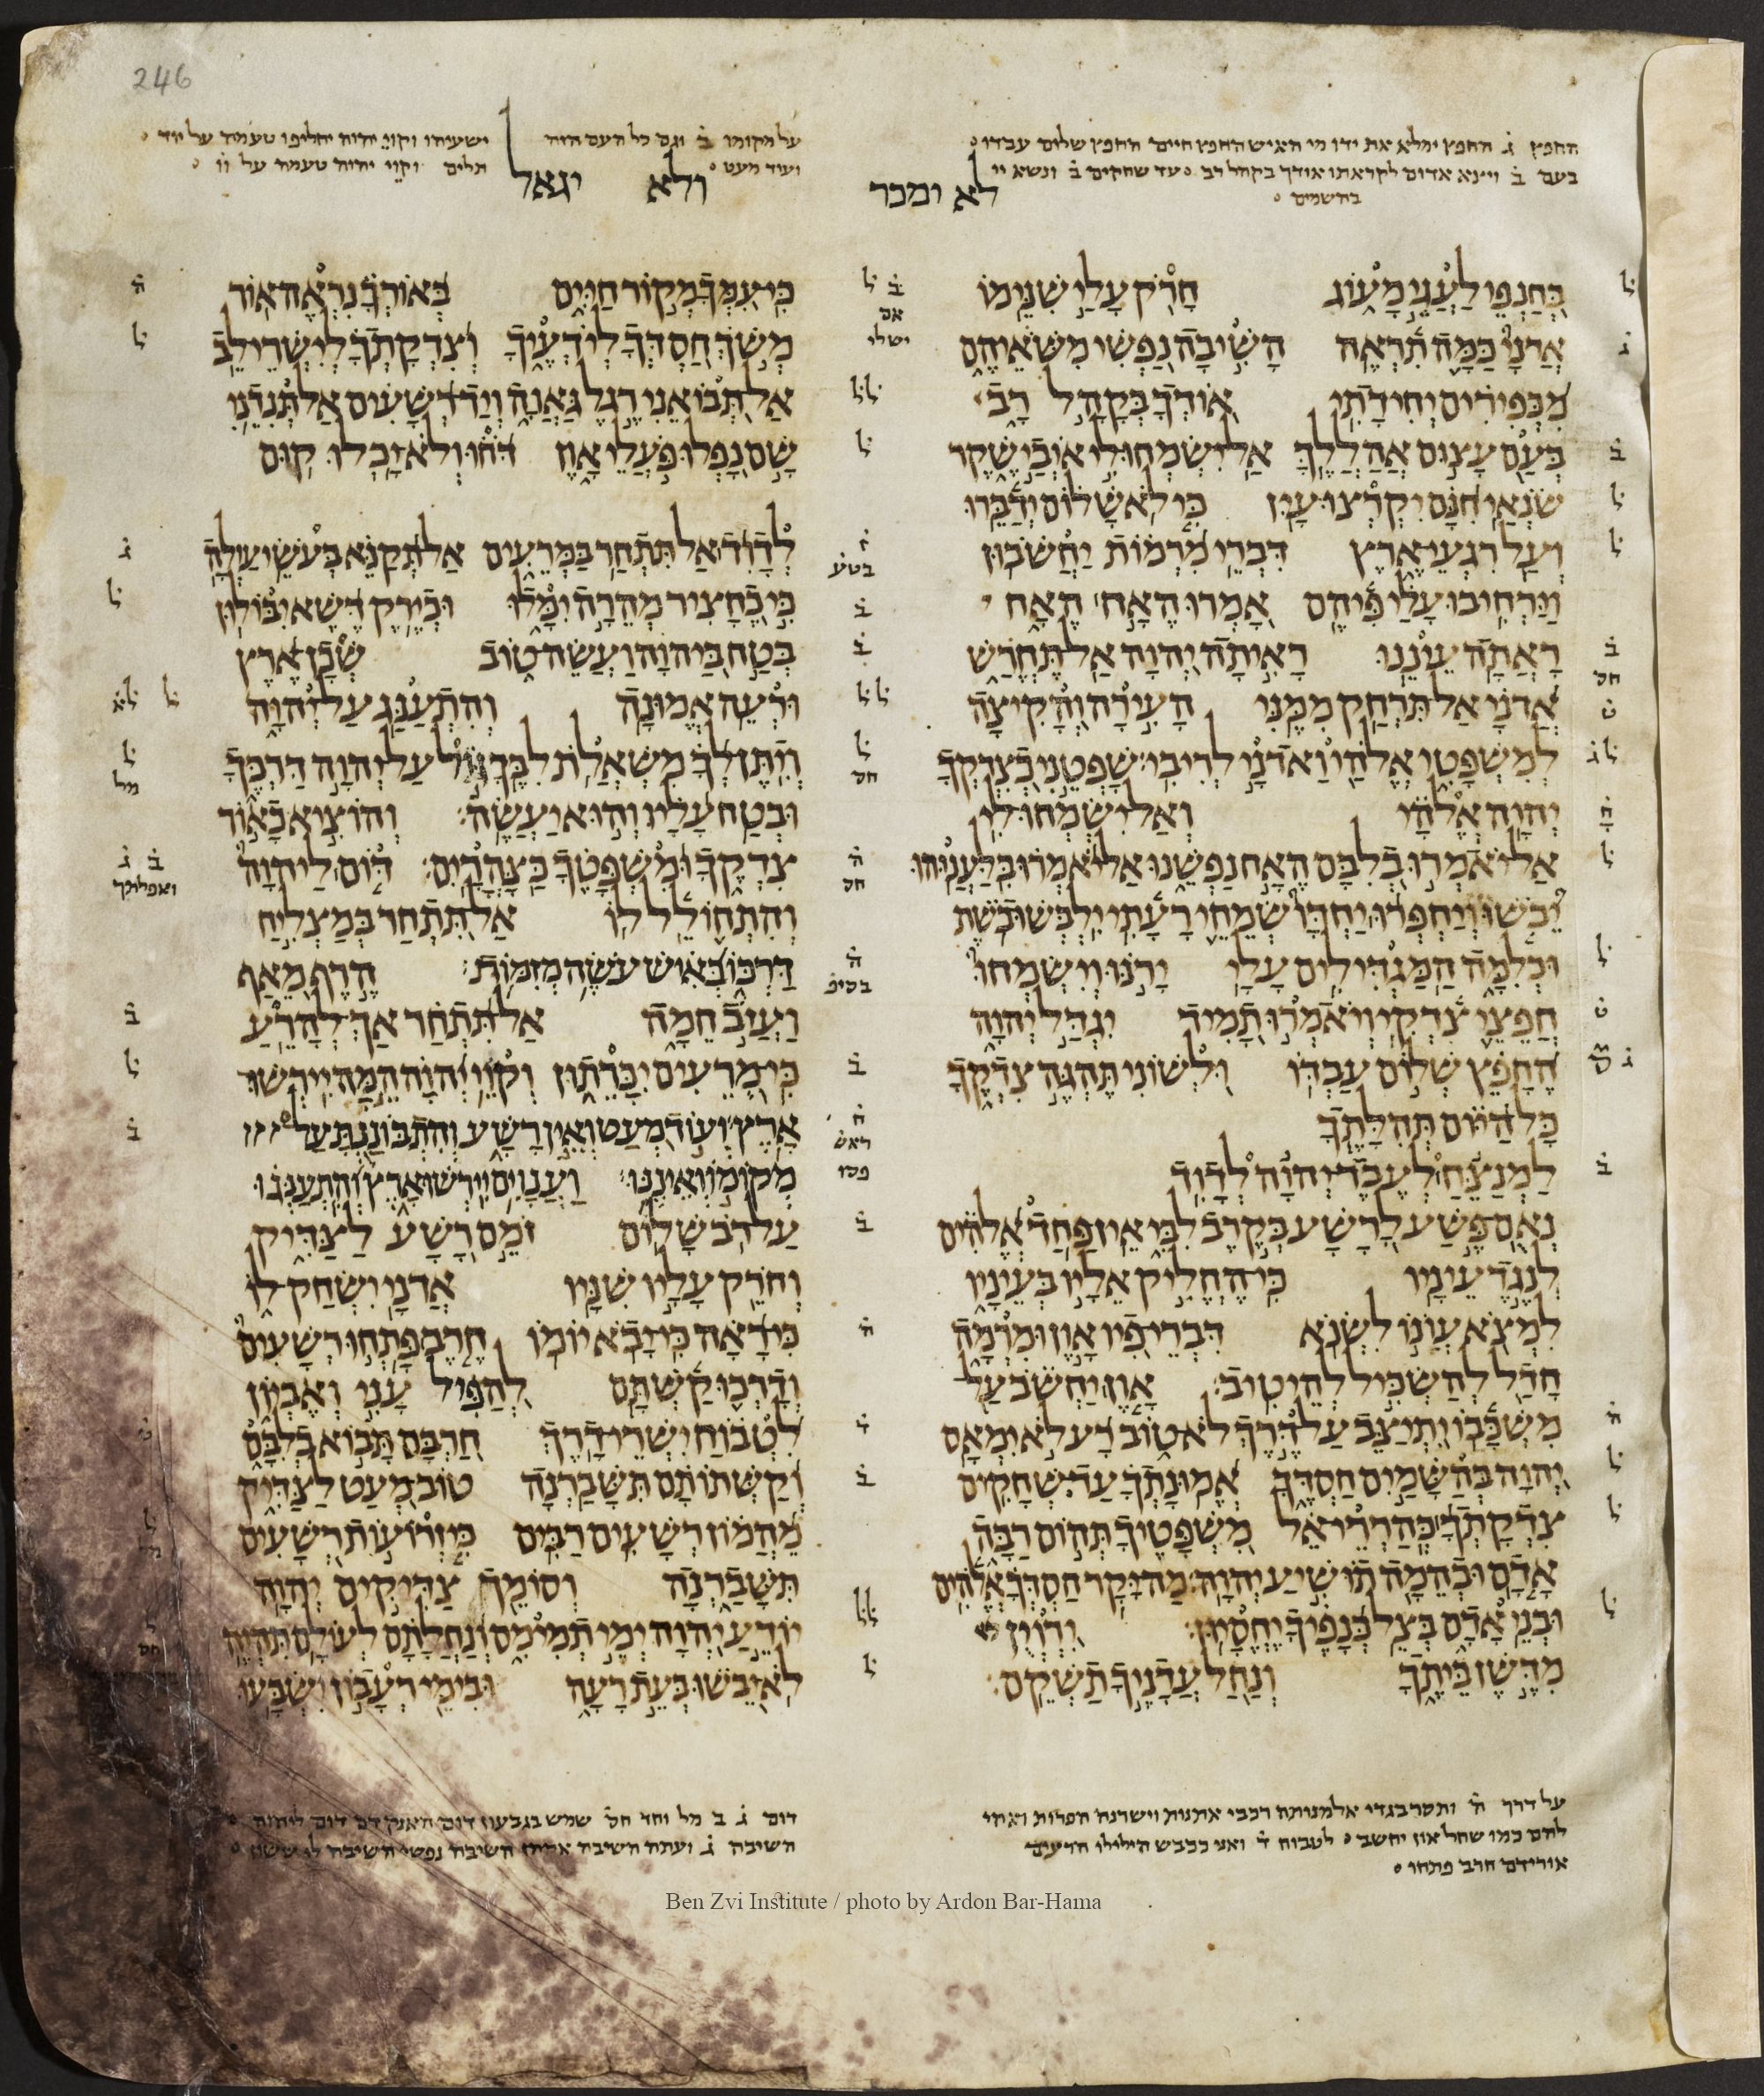 246
החפץ ג̇ החפץ ימלא את ידו מי האיש החפץ חיים החפץ שלום עבדו
בעם ב̇ ויצא אדום לקראתו אודך בקהל רב עד שחקים ב̇ ונשא יי
בהשמים
על מקומו ב̇ וגם כל העם הזה
ועוד מעט
ישעיהו וקוי יהוה יחליפו טעמה על יוד
תלים וקוי יהוה טעמה על וו
לא ימכר
ולא יגאל
בחנפי לעגי מעוג חרק עלי שנימו
אדני כמה תראה השיבה נפשי משאיהם
מכפירים יחידתי אודך בקהל רב
בעם עצום אהללך אל ישמחו לי איבי שקר
שנאי חנם יקרצו עין כי לא שלום ידברו
ועל רגעי ארץ דברי מרמות יחשבון
וירחיבו עלי פיהם אמרו האח האח
ראתה עיננו ראיתה יהוה אל תחרש
אדני אל תרחק ממני העירה והקיצה
למשפטי אלהי ואדני לריבי שפטני כצדקך
יהוה אלהי ואל ישמחו לי
אל יאמרו בלבם האח נפשנו אל יאמרו בלענוהו
יבשו ויחפרו יחדו שמחי רעתי ילבשו בשת
וכלמה המגדילים עלי ירנו וישמחו
חפצי צדקי ויאמרו תמיד יגדל יהוה
החפץ שלום עבדו ולשוני תהגה צדקך
כל היום תהלתך
למנצח לעבד יהוה לדוד
נאם פשע לרשע בקרב לבי אין פחד אלהים
לנגד עיניו כי החליק אליו בעיניו
למצא עונו לשנא דברי פיו און ומרמה
חדל להשכיל להיטיב און יחשב על
משכבו יתיצב על דרך לא טוב רע לא ימאס
יהוה בהשמים חסדך אמונתך עד שחקים
צדקתך כהררי אל משפטיך תהום רבה
אדם ובהמה תושיע יהוה מה יקר חסדך אלהים
ובני אדם בצל כנפיך יחסיון ירוין
מדשן ביתך ונחל עדניך תשקם
כי עמך מקור חיים באורך נראה אור
משך חסדך לידעיך וצדקתך לישרי לב
אל תבואני רגל גאוה ויד רשעים אל תנדני
שם נפלו פעלי און דחו ולא יכלו קום
לדוד אל תתחר במרעים אל תקנא בעשי עולה
כי כחציר מהרה ימלו וכירק דשא יבולון
בטח ביהוה ועשה טוב שכן ארץ
ורעה אמונה והתענג על יהוה
ויתן לך משאלת לבך גול על יהוה דרכך
ובטח עליו והוא יעשה והוציא כאור
צדקך ומשפטך כצהרים דום ליהוה
והתחולל לו אל תתחר במצליח
דרכו באיש עשה מזמות הרף מאף
ועזב חמה אל תתחר אך להרע
כי מרעים יכרתון וקוי יהוה המה יירשו
ארץ ועוד מעט ואין רשע והתבוננת על
מקומו ואיננו וענוים יירשו ארץ והתענגו
על רב שלום זמם רשע לצדיק
וחרק עליו שניו אדני ישחק לו
כי ראה כי יבא יומו חרב פתחו רשעים
ודרכו קשתם להפיל עני ואביון
לטבוח ישרי דרך חרבם תבוא בלבם
וקשתותם תשברנה טוב מעט לצדיק
מהמון רשעים רבים כי זרועות רשעים
תשברנה וסומך צדיקים יהוה
יודע יהוה ימי תמימם ונחלתם לעולם תהיה
לא יבשו בעת רעה ובימי רעבון ישבעו
על דרך ה̇ ותסר בגדי אלמנותה רכבי אתנות וישרנה הפרות ואחי
להם כמו שחל און יחשב לטבוח ד̇ ואני ככבש הילילו הרעים
אורידם חרב פתחו
דום ג̇ ב מל וחד חס̇ שמש בגבעון דום האנק דם דום ליהוה
השיבה ג̇ ועתה השיבה השיבה נפשי השיבה לי ששון
Ben Zvi Institute / photo by Ardon Bar-Hama